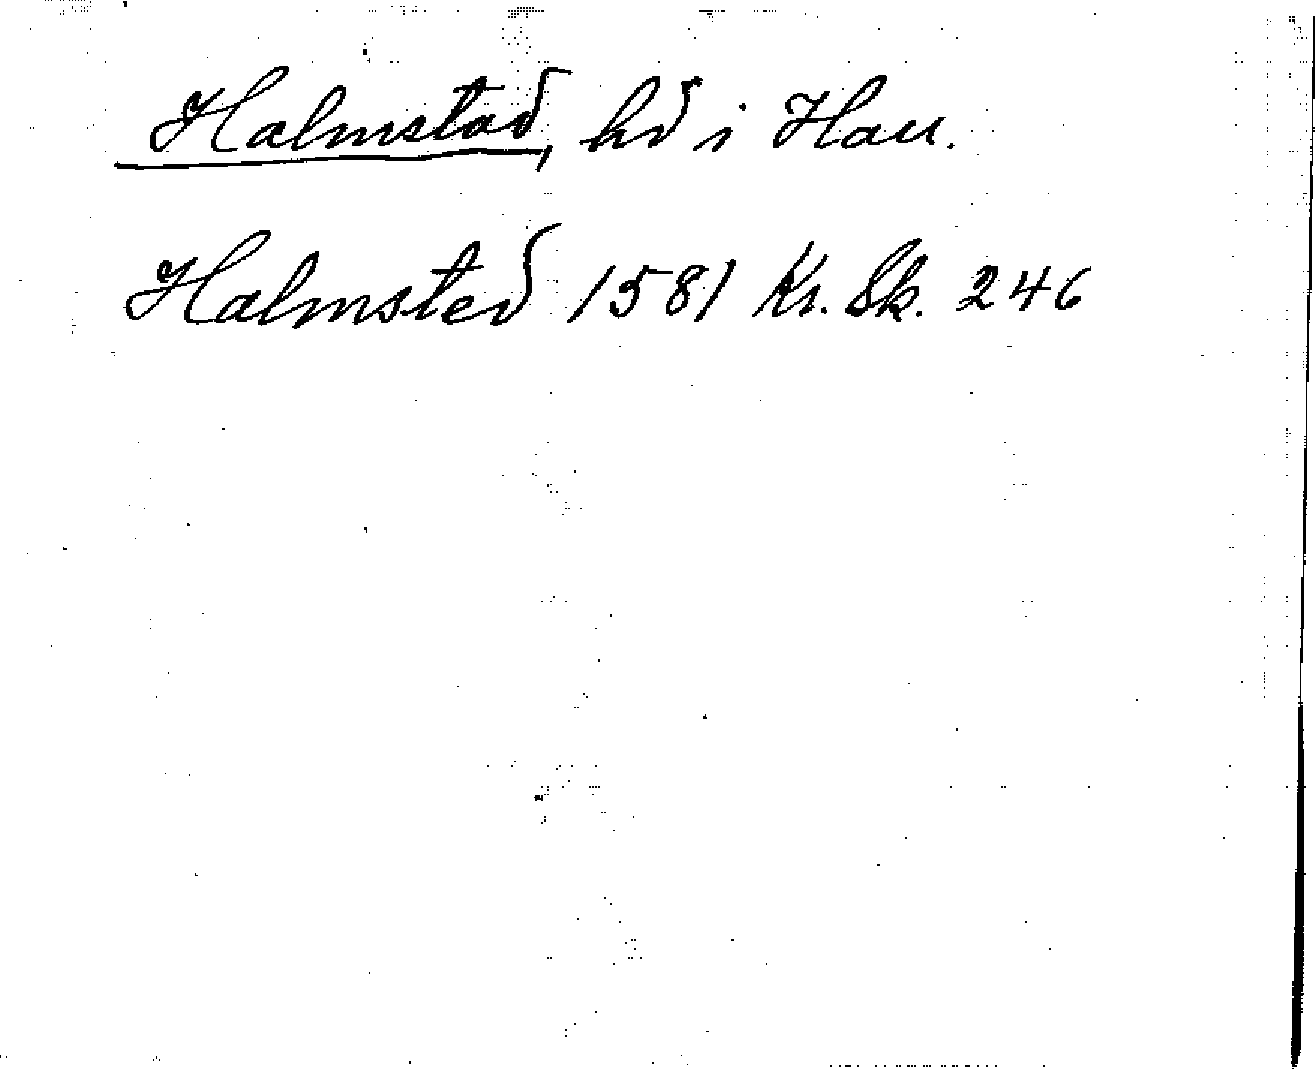 Halmstad, hd i Hall.
Halmsted 1581 Kr. Sk. 246